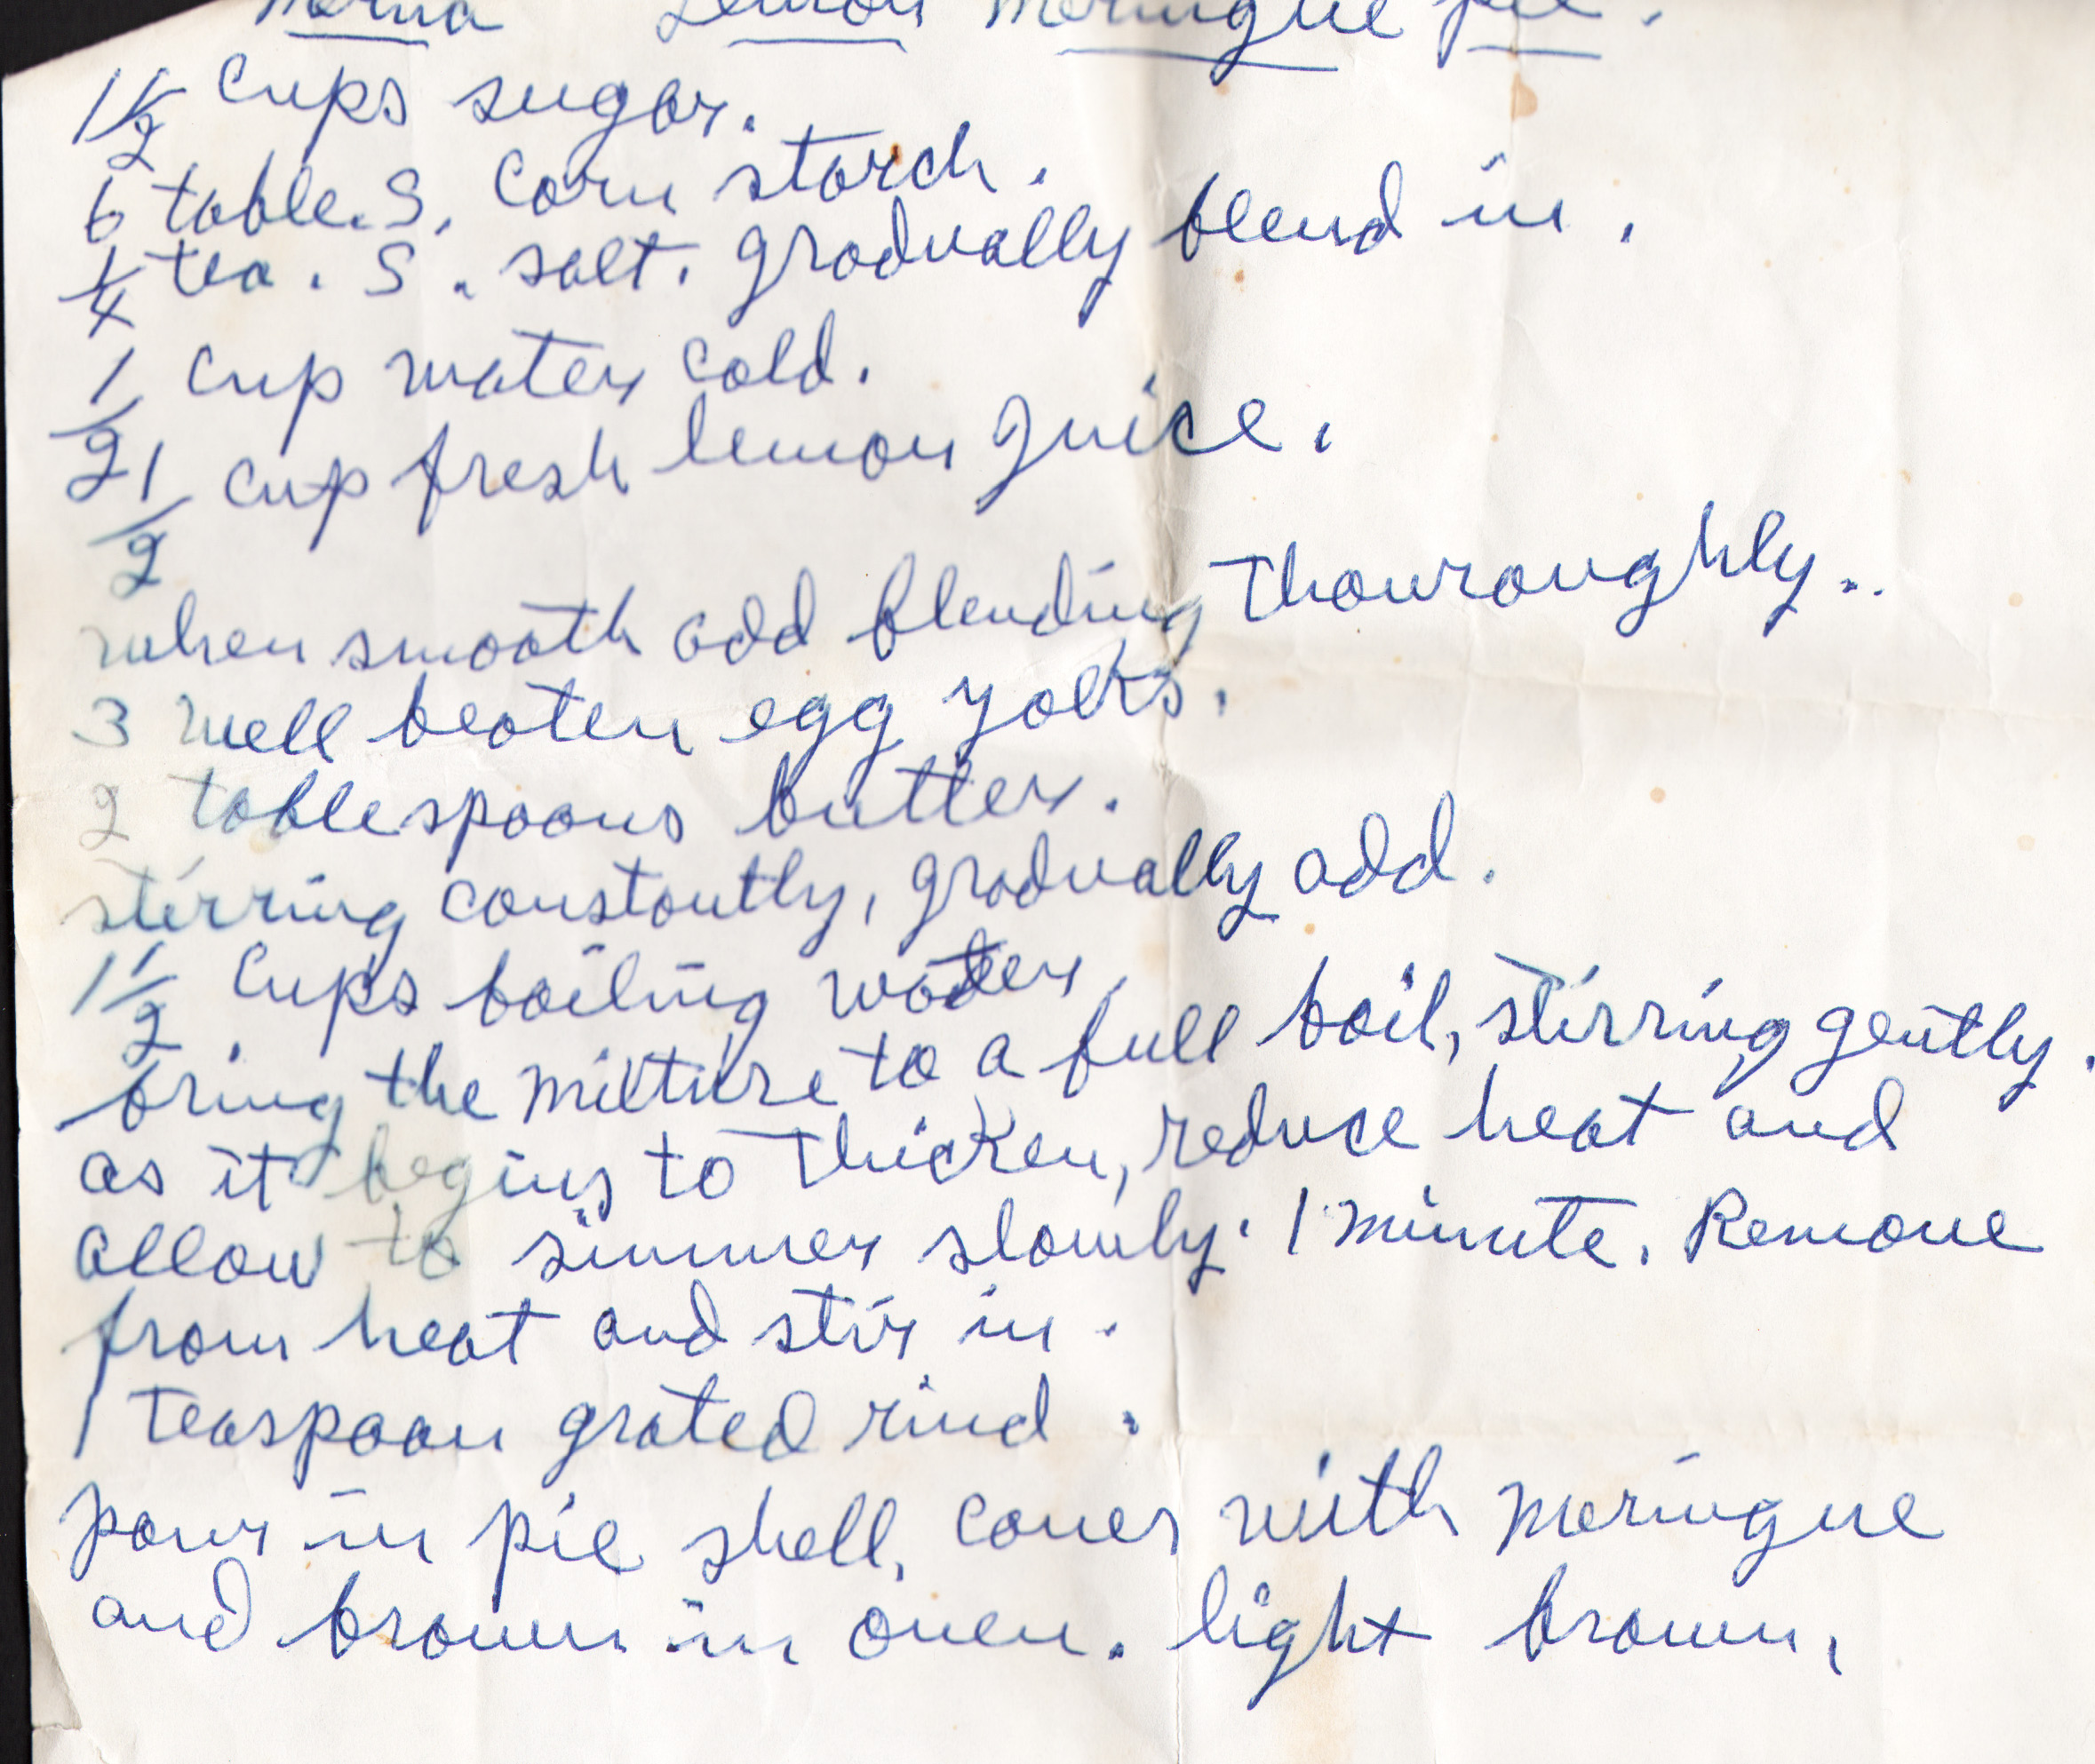 Merna Lemon Meringue pie.
1 1/2 Cups sugar.
6 table. S. Corn starch.
1/4 tea. S. salt. gradually blend in.
1/2 cup water cold.
1/2 cup fresh lemon Juice.
when smooth add blending Thouroughly..
3 well beaten egg yolks.
2 tablespoons butter.
stirring constantly, gradually add.
1 1/2 Cups boiling water,
bring the mixture to a full boil, stirring gently.
as it begins to Thicken, reduce heat and
allow to simmer slowly. 1 minute. Remove
from heat and stir in.
1 Teaspoon grated rind.
pour in pie shell, cover with Meringue
and brown in oven. light brown.